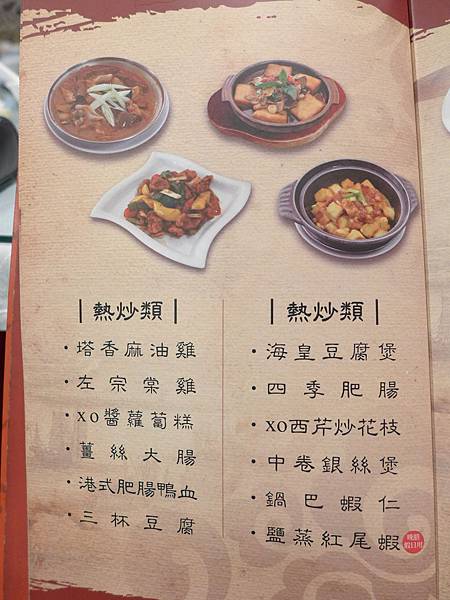 熱炒類
・塔香麻油雞
・左宗棠雞
・xo醬蘿蔔糕
・薑絲大腸
・港式肥腸鴨血
・三杯豆腐
熱炒類
・海皇豆腐煲
・四季肥腸
・xo西芹炒花枝
・中卷銀絲煲
・鍋巴蝦仁
・鹽蒸紅尾蝦